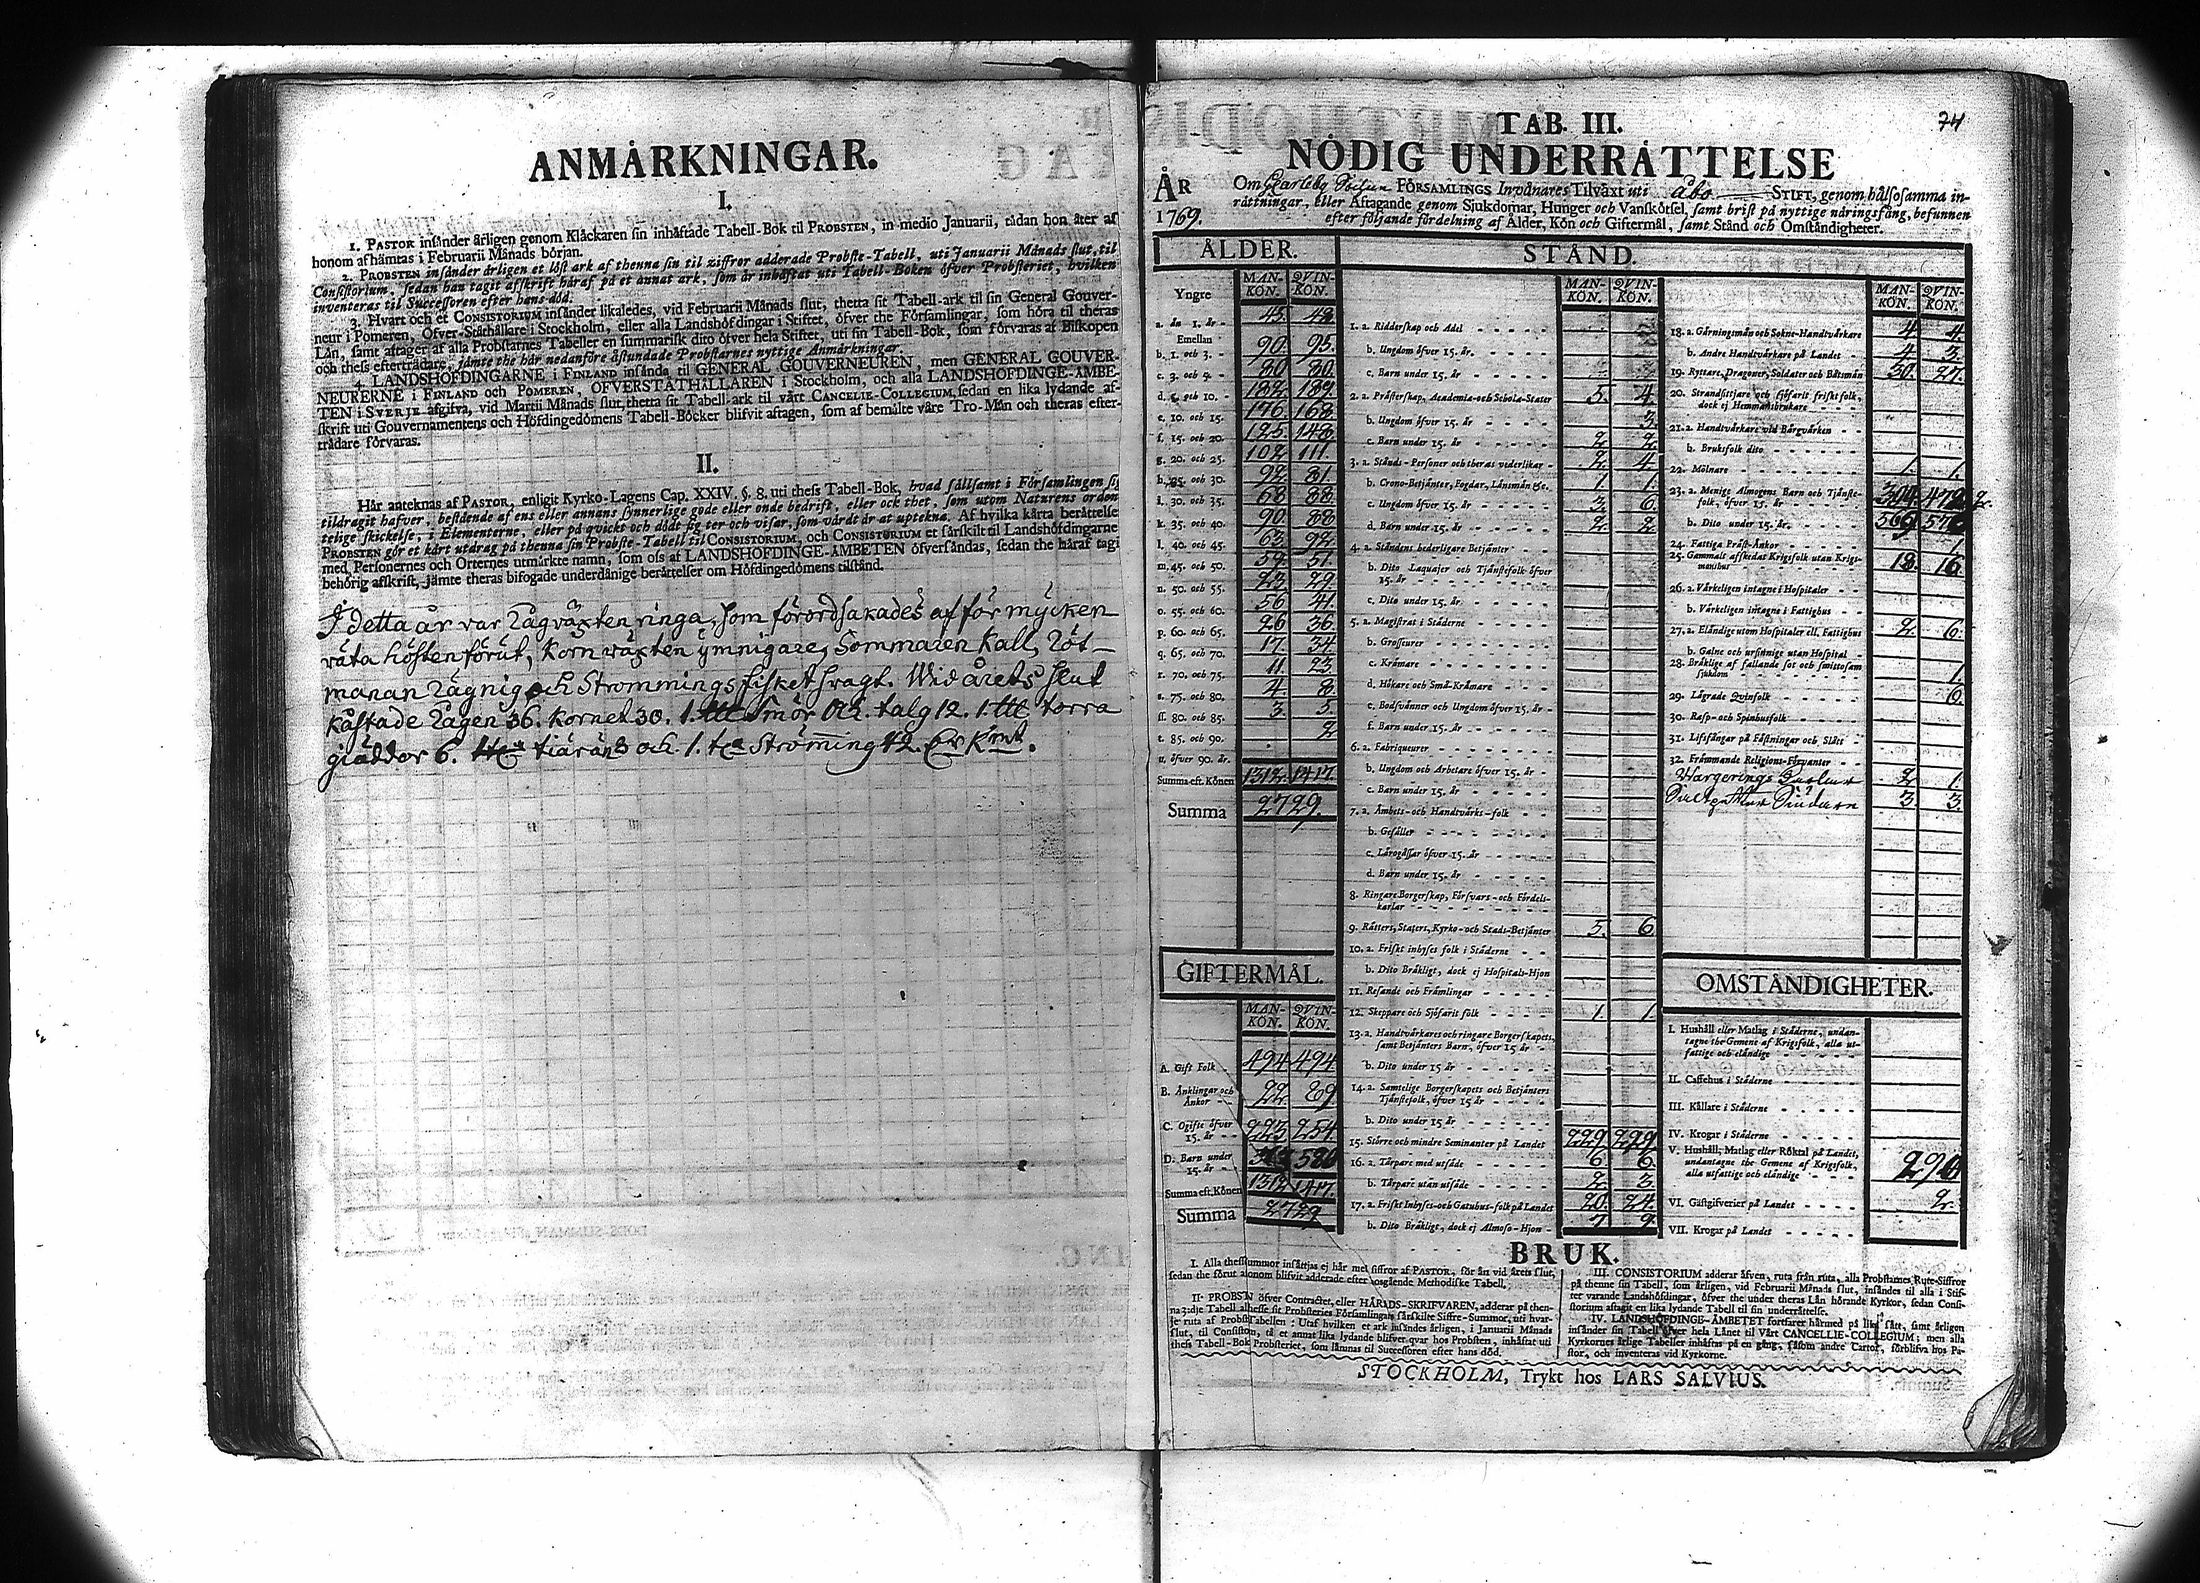 ANMÄRKNINGAR.
I.
1. PASTOR insänder årligen genom Klåckaren sin inhäftade Tabell-Bok til PROBSTEN, in medio Januarii, tädan hon åter af
honom afhämtas i Februarii Månads början.
2. PROBSTEN insänder årligen et löst ark af thenna sin til ziffror adderade Probste-Tabell, uti Januarii Månads slut, til
Consistorium, sedan han tagit afskrift häraf på et annat ark, som är inhäftat uti Tabell-Boken öfver Probsteriet, hvilken
inventeras til Successoren efter hans död.
3. Hvart och et CONSISTORIUM insänder likaledes, vid Februarii Månads slut, thetta sit Tabell-ark til sin General Gouver-
neur i Pomeren, Öfver-Ståthållare i Stockholm, eller alla Landshöfdingar i Stiftet, öfver the Församlingar, som höra til theras
Län, samt aftager af alla Probstarnes Tabeller en summarisk dito öfver hela Stiftet, uti sin Tabell-Bok, som förvaras af Biskopen
och thess efterträdare, jämte the här nedanföre åstundade Probstarnes nyttige Anmärkningar.
4. LANDSHÖFDINGARNE i FINLAND insända til GENERAL GOUVERNEUREN, men GENERAL GOUVER-
NEURERNE i FINLAND och POMEREN, ÖFVERSTÅTHÅLLAREN i Stockholm, och alla LANDSHÖFDINGE-ÄMBE-
TEN i SVERJE afgifva, vid Martii Månads slut, thetta sit Tabell-ark til vårt CANCELIE-COLLEGIUM, sedan en lika lydande af-
skrift uti Gouvernamentens och Höfdingedömens Tabell-Böcker blifvit aftagen, som af bemälte våre Tro-Män och theras efter-
trädare förvaras.
II.
Här anteknas af PASTOR, enligit Kyrko-Lagens Cap. XXIV. §. 8. uti thess Tabell-Bok, hvad sällsamt i Församlingen sig
tildragit hafver, bestående af ens eller annans synnerlige gode eller onde bedrift, eller ock thet, som utom Naturens orden
telige skickelse, i Elementerne, eller på qvickt och dödt sig ter och visar, som värdt är at uptekna. Af hvilka kårta berättelse
PROBSTEN gör et kårt utdrag på thenna sin Probste-Tabell til CONSISTORIUM, och CONSISTORIUM et särskilt til Landshöfdingarne
med Personernes och Orternes utmärkte namn, som oss af LANDSHÖFDINGE-ÄMBETEN öfversändas, sedan the häraf tagi
behörig afskrift, jämte theras bifogade underdånige berättelser om Höfdingedömens tilstånd.
I detta år var Rågväxten ringa, som förordsakades af för mycken
väta hösten förut, Kornväxten ymnigare, Sommaren Kall, Röt-
månan Rägnig och Strömmings fisket svagt. Wid årets slut
kåstade Rågen 36. Kornet 30. 1. ttt Smör och talg 12. 1. ttt torra
giäddor 6. tiäran 3 och 1. t:a Strömming 42. Dr Kmt.
74
TAB. III.
NÖDIG UNDERRÄTTELSE
ÅR
1769.
Om Carleby Sochn FÖRSAMLINGS Invånares Tilväxt uti Åbo STIFT, genom hälsosamma in-
rättningar, eller Aftagande genom Sjukdomar, Hunger och Vanskötsel, samt brist på nyttige näringsfång, befunnen
efter följande fördelning af Ålder, Kön och Giftermål, samt Stånd och Omständigheter.
ÅLDER.
MAN-KÖN. QVIN-KÖN.
Yngre
a. än 1. år - 45. 48.
Emellan
b. 1. och 3. - 90. 95.
c. 3. och 5. - 80. 80.
d. 5. och 10. - 182. 189.
e. 10. och 15. 176. 168.
f. 15. och 20. 125. 148.
g. 20. och 25. 102. 111.
h. 25. och 30. 92. 81.
i. 30. och 35. 68. 88.
k. 35. och 40. 90. 88.
l. 40. och 45. 63. 92.
m. 45. och 50. 59. 51.
n. 50. och 55. 23. 29.
o. 55. och 60. 56 41.
p. 60. och 65. 26 36.
q. 65. och 70. 17. 34.
r. 70. och 75. 11. 23.
s. 75. och 80. 4. 8.
ss. 80. och 85. 3. 5.
t. 85. och 90. 2
u. öfver 90. år.
Summa eft. Könen 1312. 1417.
Summa 2729.
GIFTERMÅL.
MAN-KÖN. QVIN-KÖN.
A. Gift Folk 494 494
B. Änklingar och
Änkor - - 22. 89.
C. Ogifte öfver
15. år - - 223. 254.
D. Barn under
15. år - 580
Summa eft. Könen 1312 1417.
Summa 2729
STÅND.
MAN-KÖN. QVIN-KÖN.
1. a. Ridderskap och Adel
b. Ungdom öfver 15. år.
c. Barn under 15. år
2. a. Prästerskap, Academia-och Schola-Stater 5. 4.
b. Ungdom öfver 15. år 3.
c. Barn under 15. år 2. 2.
3. a. Stånds-Personer och theras vederlikar 2. 4.
b. Crono-Betjänter, Fogdar, Länsmän &c. 1 1.
c. Ungdom öfver 15. år 3. 6.
d. Barn under 15. år 2. 2
4. a. Ståndens hederligare Betjänter
b. Dito Laquajer och Tjänstefolk öfver
15. år
c. Dito under 15. år
5. a. Magistrat i Städerne
b. Grosseurer
c. Krämare
d. Hökare och Små-Krämare
e. Bodsvänner och Ungdom öfver 15. år
f. Barn under 15. år
6. a. Fabriqueurer
b. Ungdom och Arbetare öfver 15. år
c. Barn under 15. år
7. a. Ämbets-och Handtvärks-folk
b. Gesäller
c. Lärogåssar öfver 15. år
d. Barn under 15. år
8. Ringare Borgerskap, Försvars-och Fördels-
karlar
9. Rätters, Staters, Kyrko-och Stads-Betjänter 5. 6
10. a. Friskt inhyses folk i Städerne
b. Dito Bräkligt, dock ej Hospitals-Hjon
11. Resande och Främlingar
12. Skeppare och Sjöfarit folk 1. 1.
13. a. Handtvärkares och ringare Borgerskapets,
samt Betjänters Barn, öfver 15 år
b. Dito under 15 år
14. a. Samtelige Borgerskapets och Betjänters
Tjänstefolk, öfver 15 år
b. Dito under 15 år
15. Större och mindre Seminanter på Landet 229. 229.
16. a. Tårpare med utsäde 6. 6.
b. Tårpare utan utsäde 2. 3.
17. a. Friskt Inhyses-och Gatuhus-folk på Landet 20. 24.
b. Dito Bräkligt, dock ej Almoso-Hjon 7 9.
MAN-KÖN. QVIN-KÖN.
18. a. Gärningsmän och Sokne-Handtvärkare 4 4.
b. Andre Handtvärkare på Landet 4 3.
19. Ryttare, Dragoner, Soldater och Båtsmän 30. 27.
20. Strandsittjare och sjöfarit friskt folk,
dock ej Hemmansbrukare
21. a. Handtvärkare vid Bärgvärken
b. Bruksfolk dito
22. Mölnare 1. 1.
23. a. Menige Allmogens Barn och Tjänste-
folk, öfver 15. år
b. Dito under 15. år.
24. Fattiga Präst-Änkor 1.
25. Gammalt afskedat Krigsfolk utan Krigs-
mantbur 18. 16.
26. a. Värkeligen intagne i Hospitaler
b. Värkeligen intagne i Fattighus
27. a. Eländige utom Hospitaler ell. Fattighus 2. 6.
b. Galne och ursinnige utan Hospital
28. Bräklige af fallande sot och smittosam
sjukdom 1.
29. Lägrade Qvinfolk 6.
30. Rasp-och Spinhusfolk
31. Lifsfångar på Fästningar och Slått
32. Främmande Religions-Förvanter
2. 1.
3. 3.
OMSTÄNDIGHETER.
I. Hushåll eller Matlag i Städerne, undan-
tagne the Gemene af Krigsfolk, alla ut-
fattige och eländige
II. Caffehus i Städerne
III. Källare i Städerne
IV. Krogar i Städerne
V. Hushåll, Matlag eller Röktal på Landet,
undantagne the Gemene af Krigsfolk,
alla utfattige och eländige 290
VI. Gästgifverier på Landet 2.
VII. Krogar på Landet
BRUK.
I. Alla thess summor insättjas ej här med siffror af PASTOR, för än vid årets slut,
sedan the förut blifvit adderade efter Methodiske Tabell.
II. PROBSTEN öfver Contractet, eller HÄRADS-SKRIFVAREN, adderar på then-
na 3:dje Tabell sit Probsteries Församlingars särskilte Siffre-Summor, uti hvar-
je ruta af Probste Tabellen: Utaf hvilken et ark insändes årligen, i Januarii Månads
slut, til Consistorium, tå et annat lika lydande blifver qvar hos Probsten, inhäftat uti
thess Tabell-Bok Probsteriet, som lämnas til Successoren efter hans död.
III. CONSISTORIUM adderar äfven, ruta från ruta, alla Probstarnes Rute-Siffror
på thenne sin Tabell, som årligen, vid Februarii Månads slut, insändes til alla i Stif-
tet varande Landshöfdingar, öfver the under theras Län hörande Kyrkor, sedan Consi-
storium aftagit en lika lydande Tabell til sin underrättelse.
IV. LANDSHÖFDINGE-ÄMBETET fortfarer härmed på lika sätt, samt årligen
insänder sin Tabell öfver hela Länet til Vårt CANCELLIE-COLLEGIUM; men alla
Kyrkornes årlige Tabeller inhäftas på en gång, såsom andre Cartor, förblifva hos Pa-
stor, och inventeras vid Kyrkorne.
STOCKHOLM, Trykt hos LARS SALVIUS.